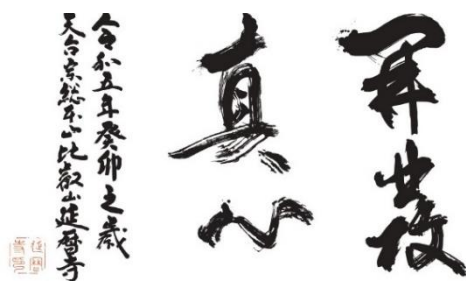 開發
真心
令和五年癸卯之歳
天台宗総本山比叡山延暦寺